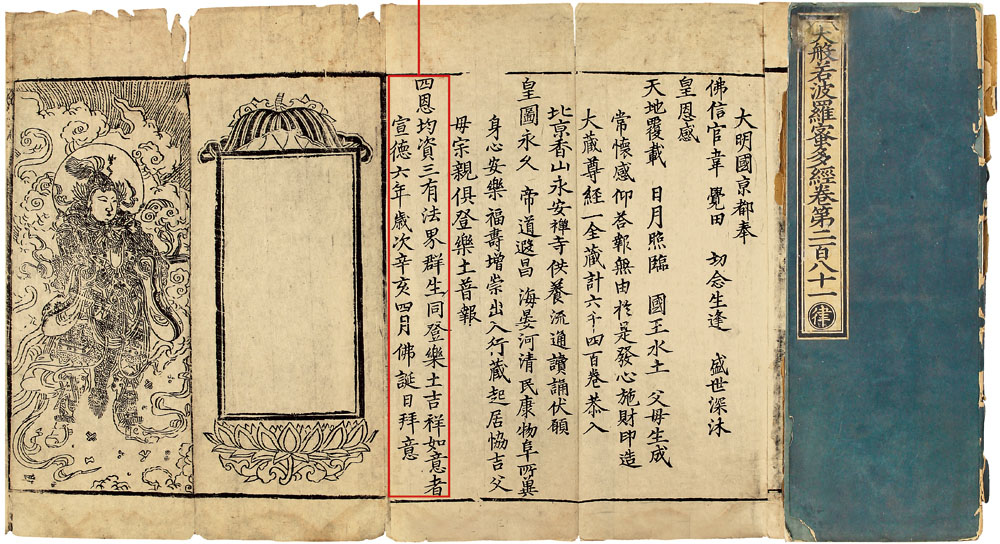 大般若波羅蜜多經卷第二百八十一
律
大明國京都奉
佛信官韋 覺田 切念生逢 盛世深沐
皇恩感
天地覆載 日月照臨 國王水土 父母生成
常懷感仰荅報無由於是發心施財印造
大藏尊經一全藏計六千四百卷恭入
北京香山永安禪寺供養流通讀誦伏願
皇圖永久 帝道遐昌 海晏河清民康物阜所兾
身心安樂福壽增崇出入行藏起居恊吉父
母宗親俱登樂土普報
四恩均資三有法界群生同登樂土吉祥如意者
宣德六年歲次辛亥四月佛誕日拜意